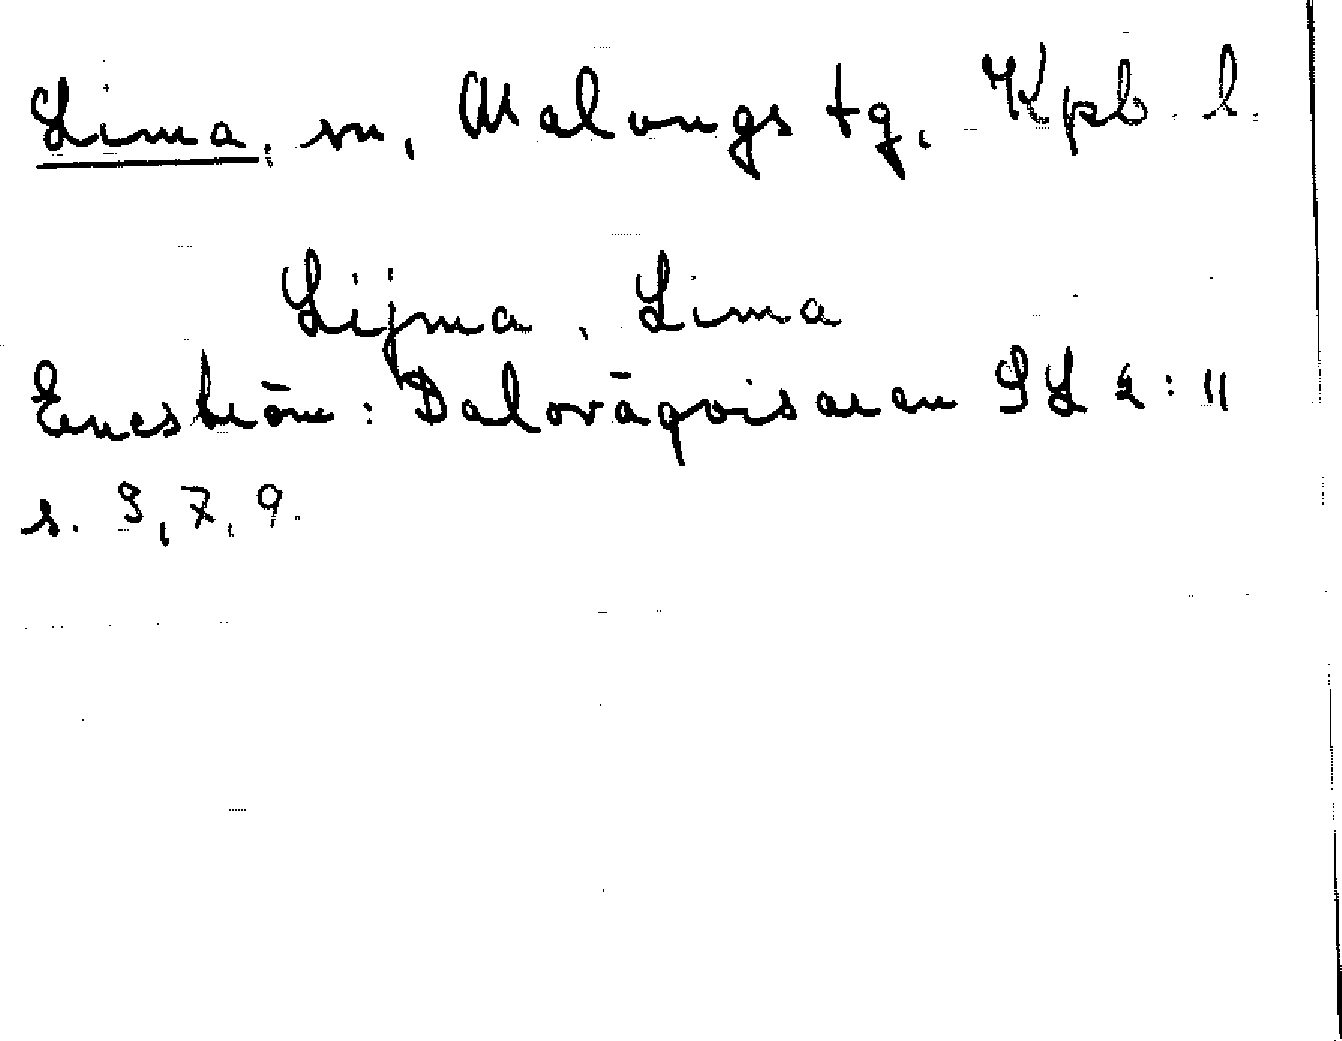 Lima, sn, Malungs tg, Kpb. l.
Lijma, Lima
Eneström: Dalovägvisaren SL 2:11
s. 3, 7, 9.